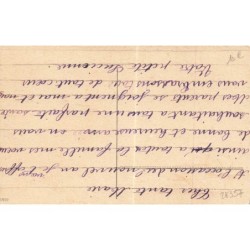 Chère tante Marie
A l'occasion du nouvel an je t'offre
ainsi qu'à toute la famille mes vœux
de bonne et heureuse année en vous
souhaitant à tous une parfaite santé
Mes parents se joignent à moi et nous
vous embrassons tous de tout cœur
Votre petite Lucienne